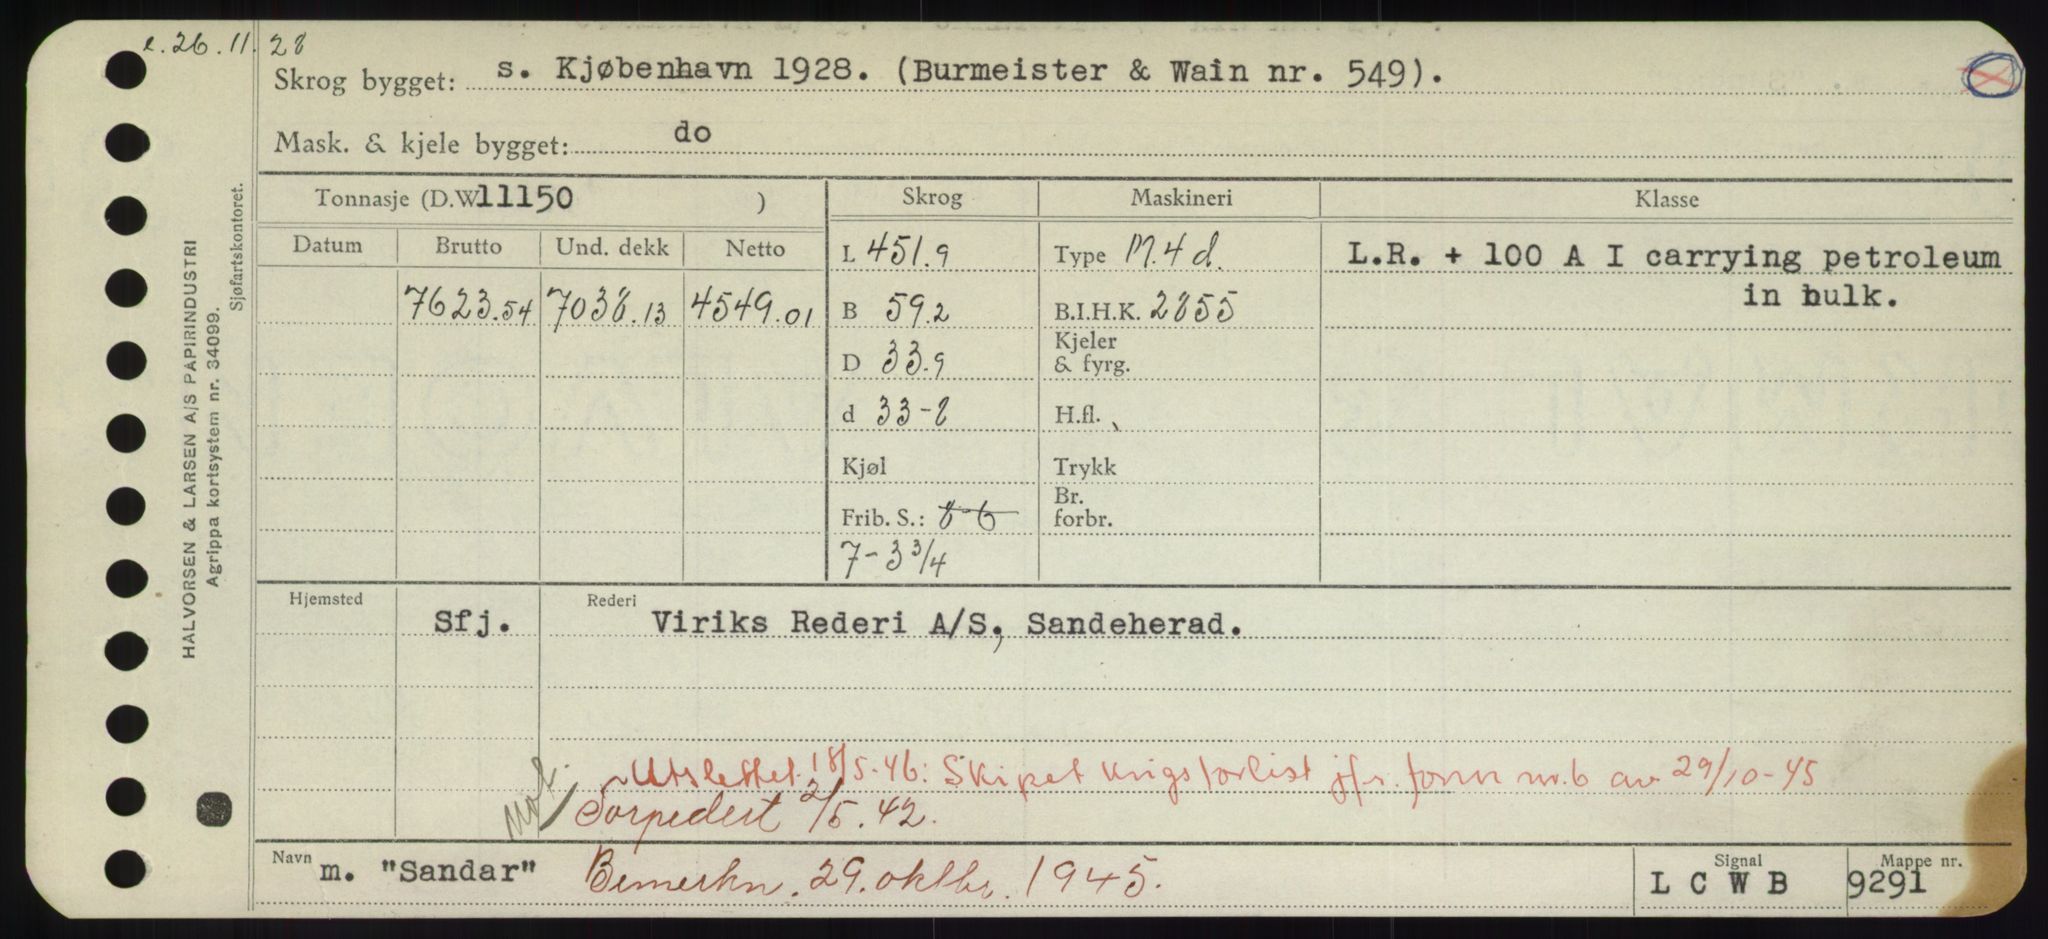 e. 26.11.28
Skrog bygget: s. Kjøbenhavn 1928. (Burmeister & Wain nr. 549).
Mask. & kjele bygget: do
Tonnasje (D.W 11150 ) Skrog Maskineri Klasse
Datum Brutto Und. dekk Netto L 451.9 Type M. 4 d. L.R. + 100 A I carrying petroleum
in bulk.
7623.54 7038.13 4549.01 B 59.2 B.I.H.K. 2855
D 33.9 Kjeler
& fyrg.
d 33-8 H.fl.
Kjøl Trykk
Frib. S.: 8-6 Br.
forbr.
7-3 3/4
Hjemsted Sfj. Rederi Viriks Rederi A/S, Sandeherad.
Utslettet 18/5-46: Skipet krigsforlist jfr. form nr. 6 av 29/10-45
Torpedert 2/5.42.
Navn m. "Sandar" Bemerkn. 29. oktbr. 1945. Signal L C W B Mappe nr. 9291
HALVORSEN & LARSEN A/S PAPIRINDUSTRI
Agrippa kortsystem nr. 34099.
Sjøfartskontoret.